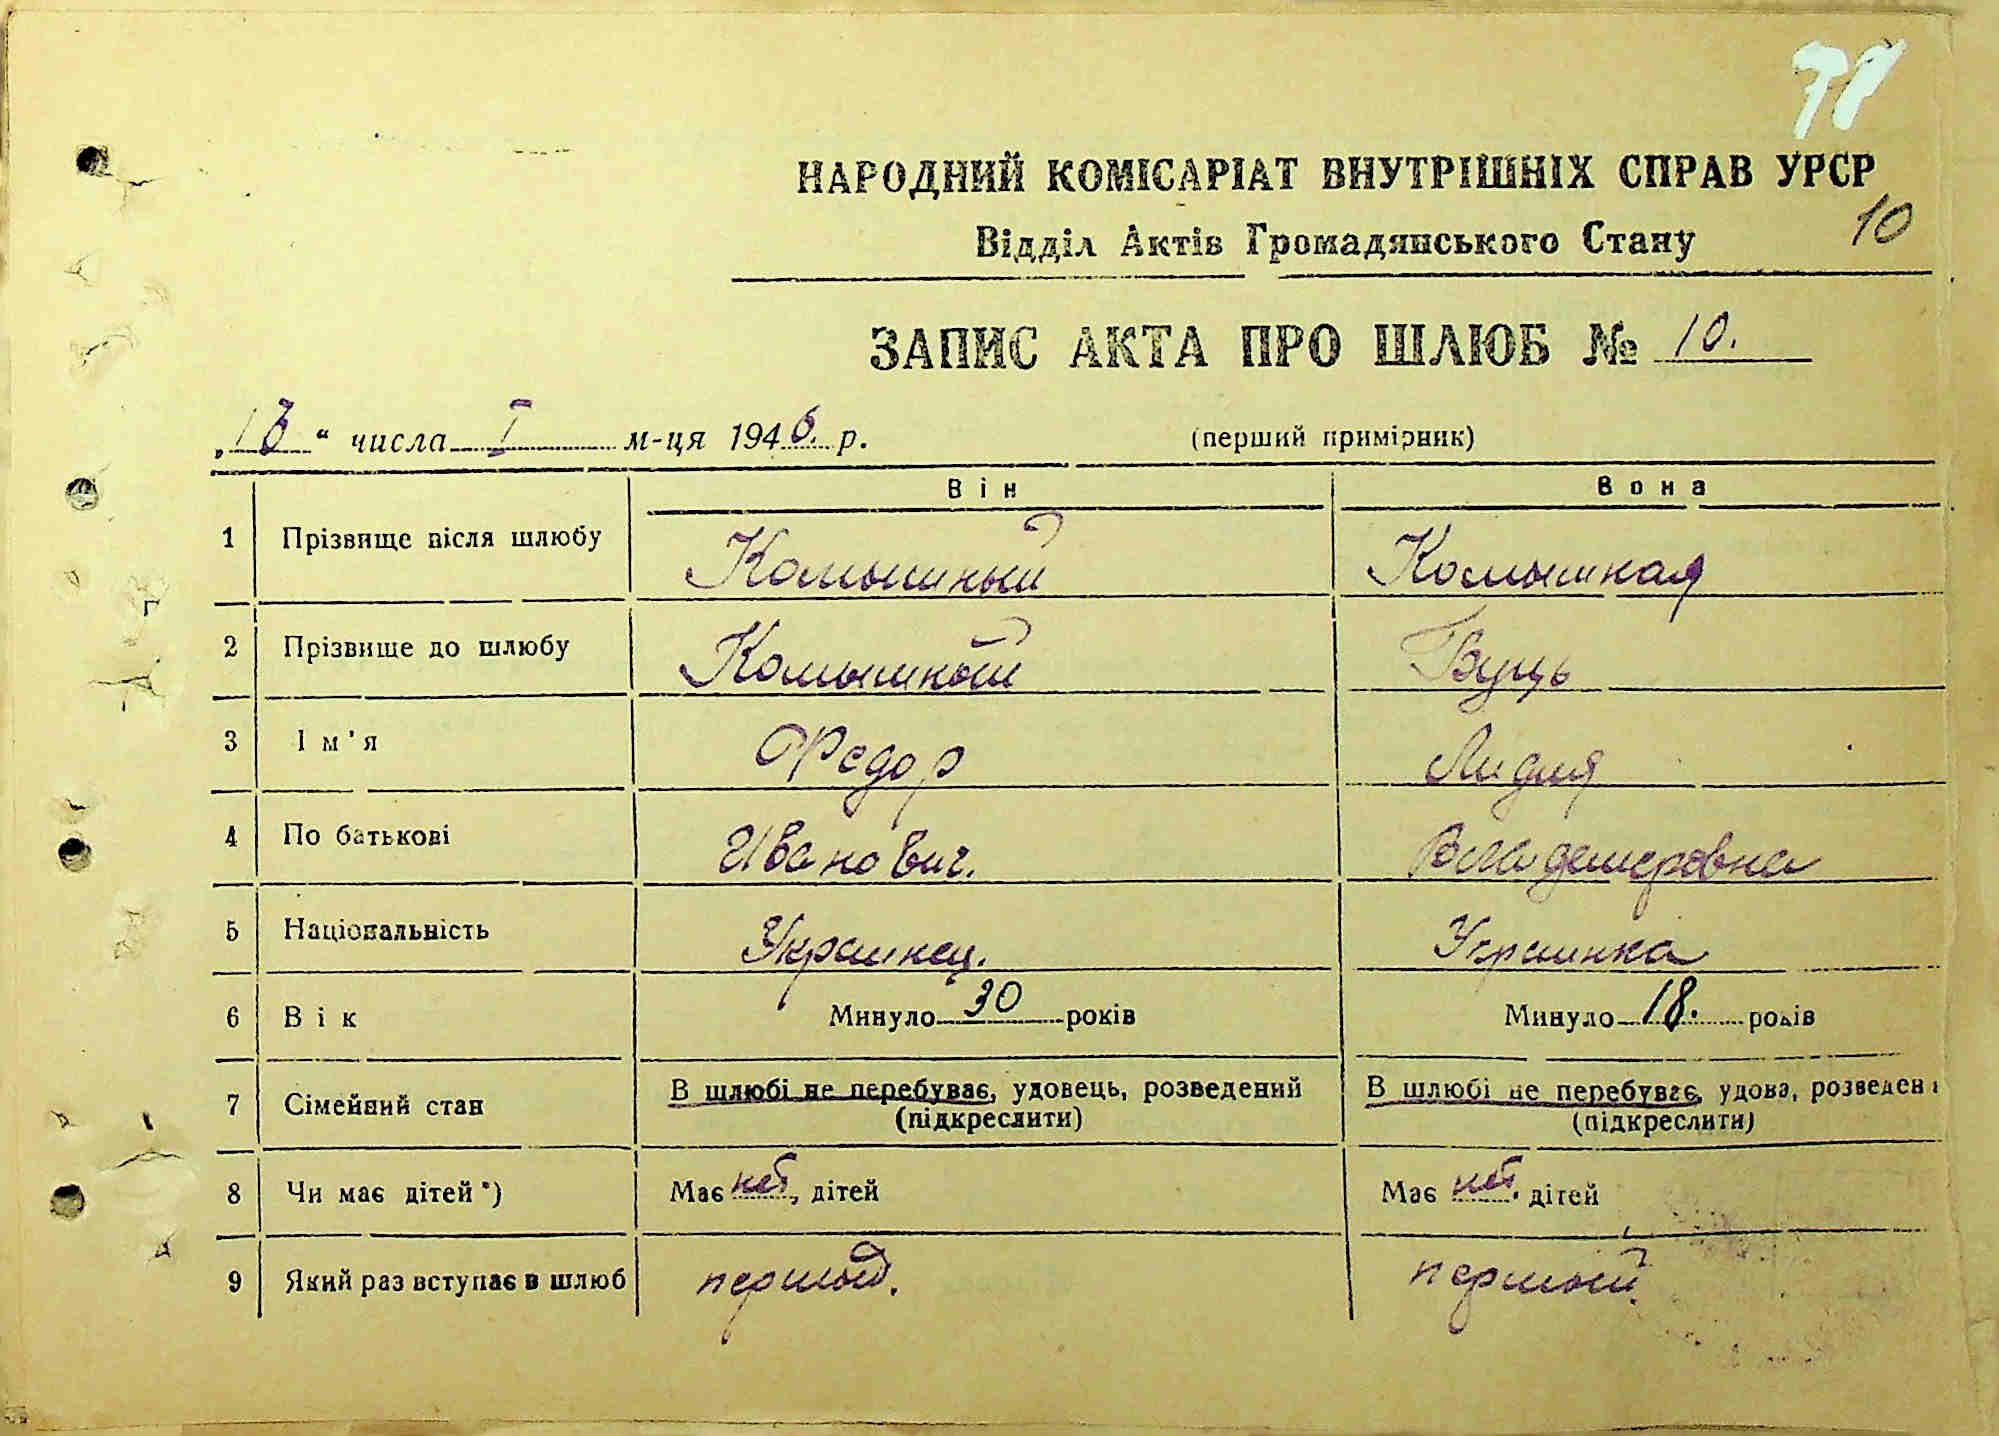 78
НАРОДНИЙ КОМІСАРІАТ ВНУТРІШНІХ СПРАВ УРСР
10
Відділ Актів Громадянського Стану
ЗАПИС АКТА ПРО ШЛЮБ № 10.
„16“ числа I м-ця 1946. р. (перший примірник)
Він Вона
1 Прізвище після шлюбу
2 Прізвище до шлюбу Буць
3 Ім'я Федор Лидия
4 По батькові Иванович. Владемеровна
5 Національність Украинец. Украинка
6 Вік Минуло 30 років Минуло 18. років
7 Сімейний стан В шлюбі не перебуває, удовець, розведений В шлюбі не перебуває, удова, розведен
(підкреслити) (підкреслити)
8 Чи має дітей*) Має нет, дітей Має нет. дітей
9 Який раз вступає в шлюб первый. первый.